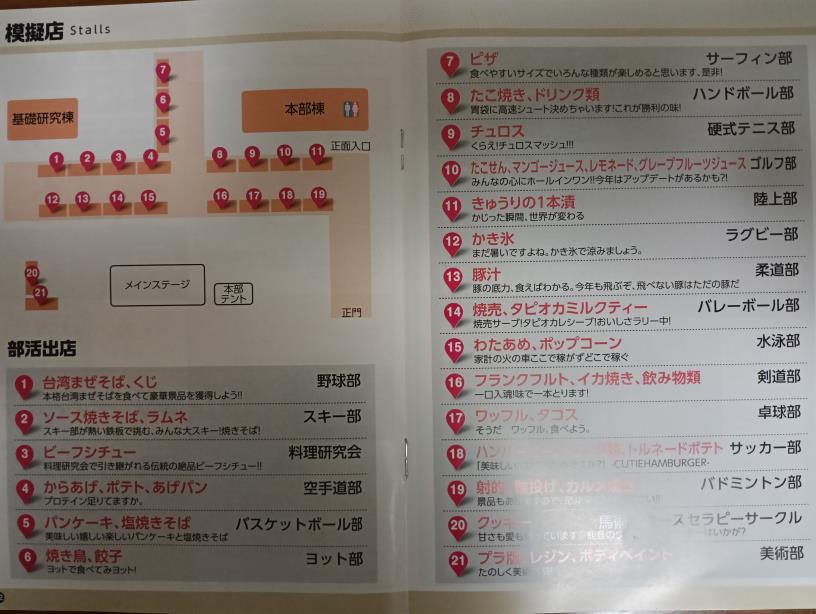 模擬店 Stalls
7
6
基礎研究棟
本部棟
5
正面入口
1 2 3 4 8 9 10 11
12 13 14 15 16 17 18 19
20
21
メインステージ
本部
テント
正門
部活出店
1 台湾まぜそば、くじ 野球部
本格台湾まぜそばを食べて豪華景品を獲得しよう!!
2 ソース焼きそば、ラムネ スキー部
スキー部が熱い鉄板で挑む、みんな大スキー!焼きそば!
3 ビーフシチュー 料理研究会
料理研究会で引き継がれる伝統の絶品ビーフシチュー!!
4 からあげ、ポテト、あげパン 空手道部
プロテイン足りてますか。
5 パンケーキ、塩焼きそば バスケットボール部
美味しい嬉しい楽しいパンケーキと塩焼きそば
6 焼き鳥、餃子 ヨット部
ヨットで食べてみヨット!
7 ピザ サーフィン部
食べやすいサイズでいろんな種類が楽しめると思います、是非!
8 たこ焼き、ドリンク類 ハンドボール部
胃袋に高速シュート決めちゃいます!これが勝利の味!
9 チュロス 硬式テニス部
くらえ!チュロスマッシュ!!!
10 たこせん、マンゴージュース、レモネード、グレープフルーツジュース ゴルフ部
みんなの心にホールインワン!!今年はアップデートがあるかも?!
11 きゅうりの1本漬 陸上部
かじった瞬間、世界が変わる
12 かき氷 ラグビー部
まだ暑いですよね。かき氷で涼みましょう。
13 豚汁 柔道部
豚の底力、食えばわかる。今年も飛ぶぞ、飛べない豚はただの豚だ
14 焼売、タピオカミルクティー バレーボール部
焼売サーブ!タピオカレシーブ!おいしさラリー中!
15 わたあめ、ポップコーン 水泳部
家計の火の車ここで稼がずどこで稼ぐ
16 フランクフルト、イカ焼き、飲み物類 剣道部
一口入魂!味で一本とります!
17 ワッフル、タコス 卓球部
そうだ ワッフル、食べよう。
18 ハンバ トルネードポテト サッカー部
「美味しい -CUTIEHAMBURGER-
19 射的、輪投げ、カルメ焼き バドミントン部
景品もあ
20 クッキー 馬術 スセラピーサークル
甘さも愛も はいかが?
21 プラ版、レジン、ボディペイント 美術部
たのしく美術